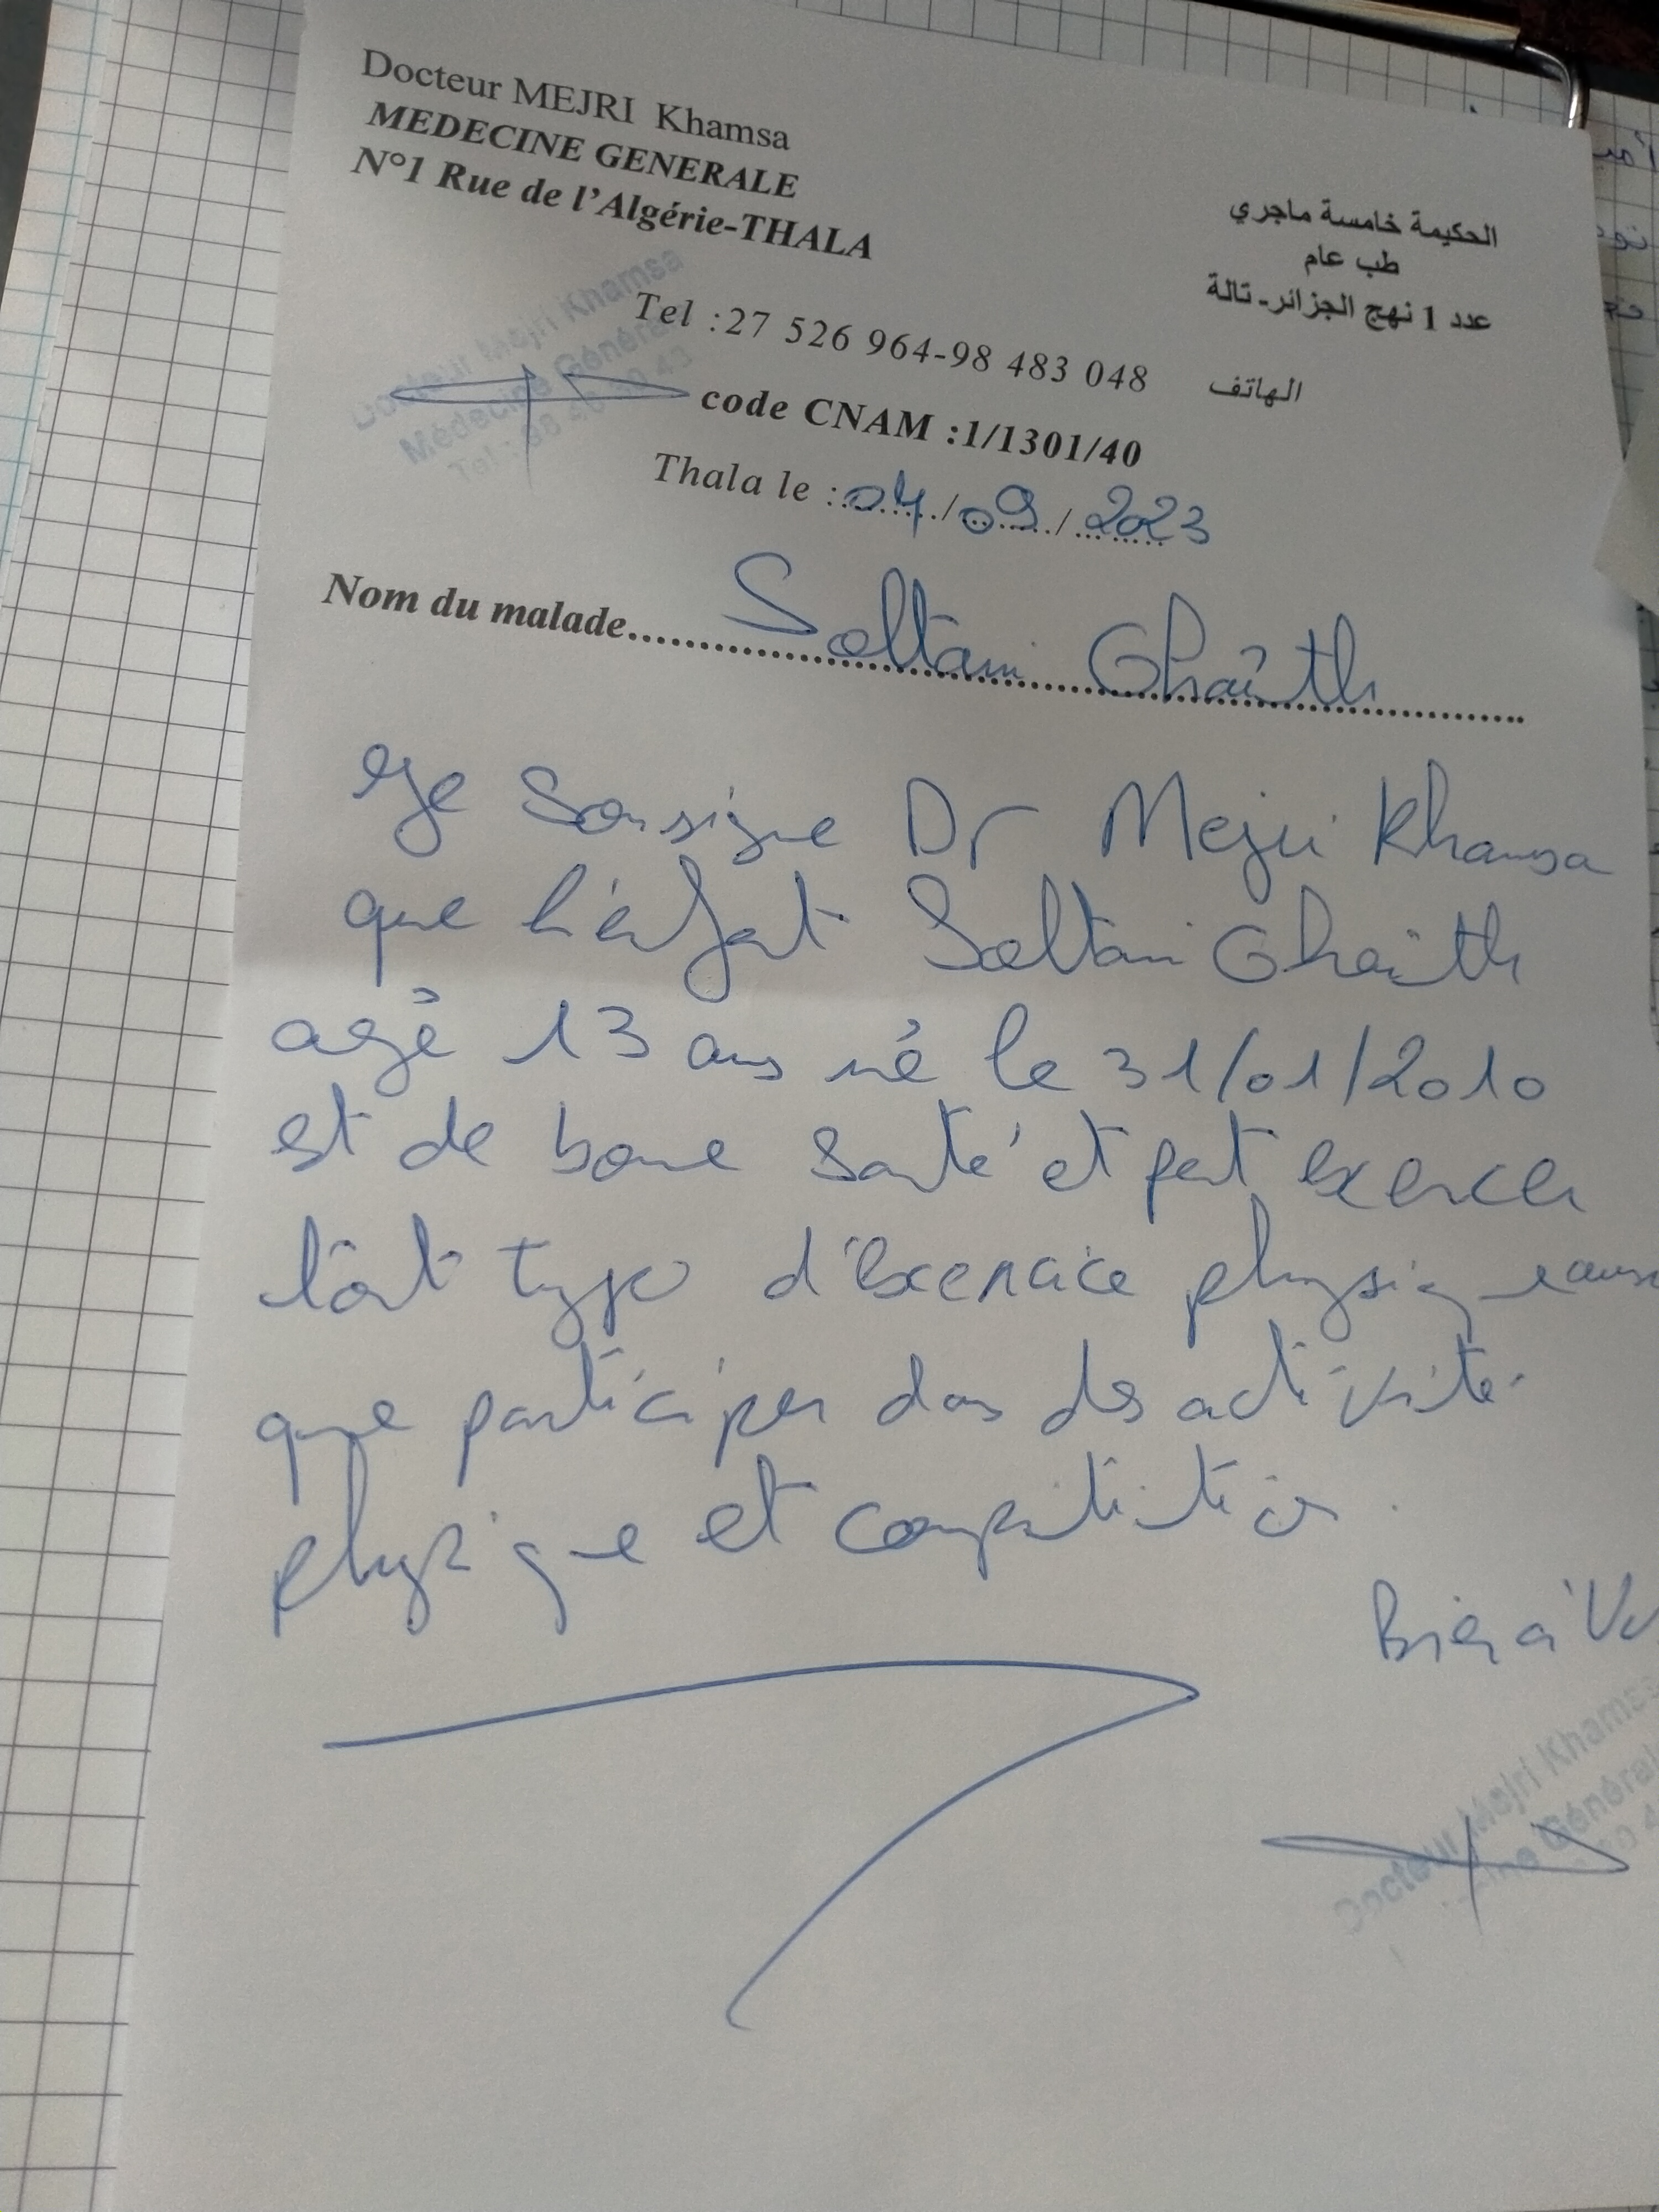 Docteur MEJRI Khamsa
MEDECINE GENERALE
N°1 Rue de l'Algérie-THALA
الحكيمة خامسة ماجري
طب عام
عدد 1 نهج الجزائر- تالة
Docteur Mejri Khamsa
Médecine Générale
Tel :27 526 964-98 483 048 الهاتف
code CNAM :1/1301/40
Thala le :04/09/2023
Nom du malade Soltani Ghaith
Je Sousigne Dr Mejri Khamsa
que l'enfant Soltani Ghaith
agé 13 ans né le 31/01/2010
est de bone santé et peut exercer
tout type d'exercice physique aussi
que participer dans des activité
physique et compétition.
Docteur Mejri Khamsa